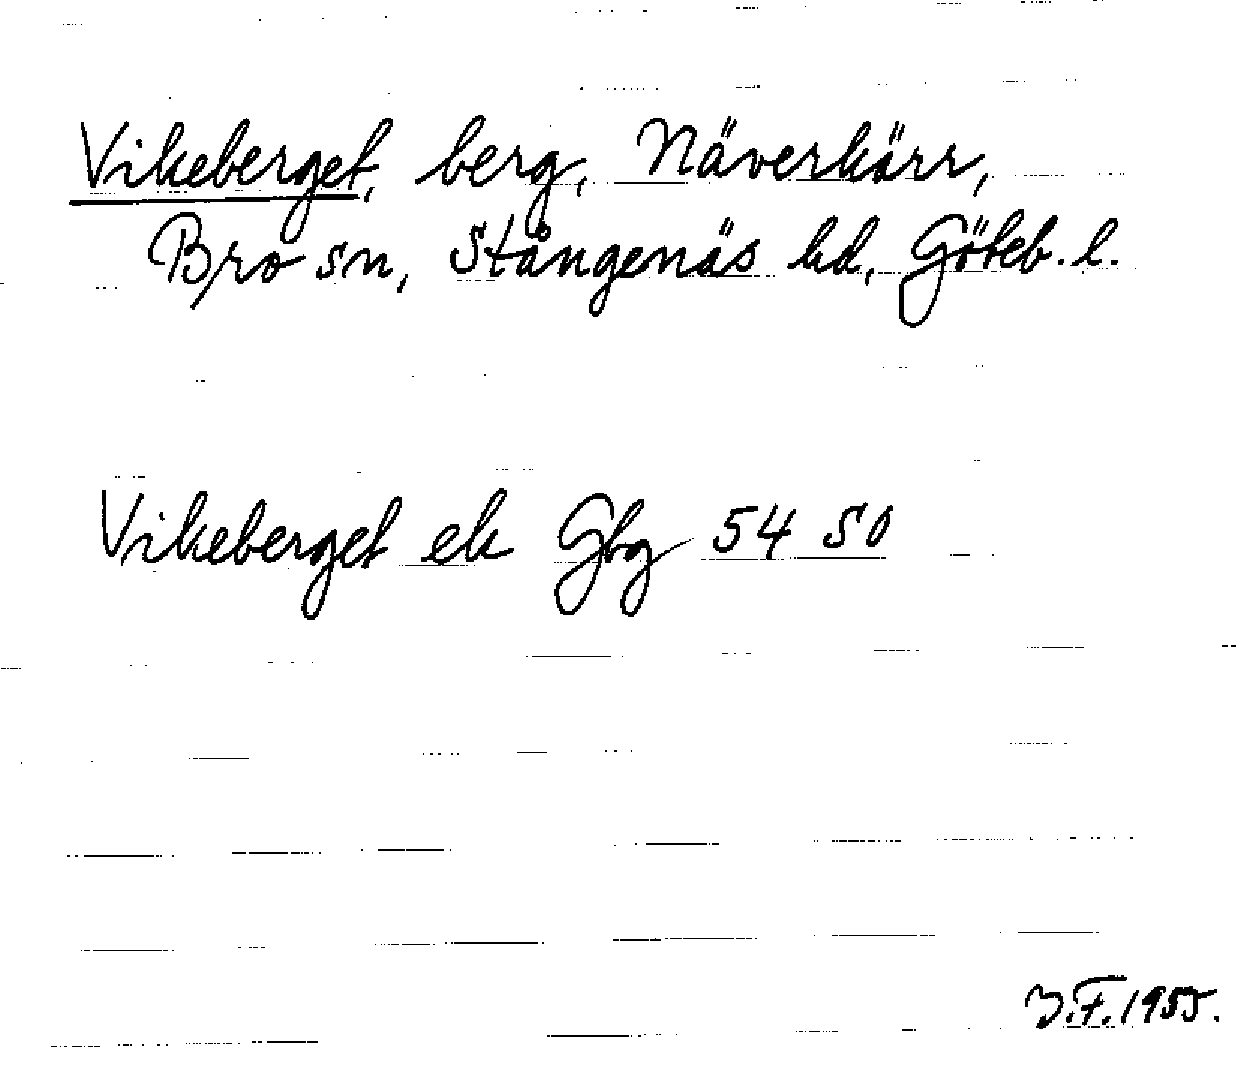 Vikeberget, berg, Näverkärr,
Bro sn, Stångenäs hd, Göteb. l.
Vikeberget ek Gbg 54 SO
J.F. 1955.